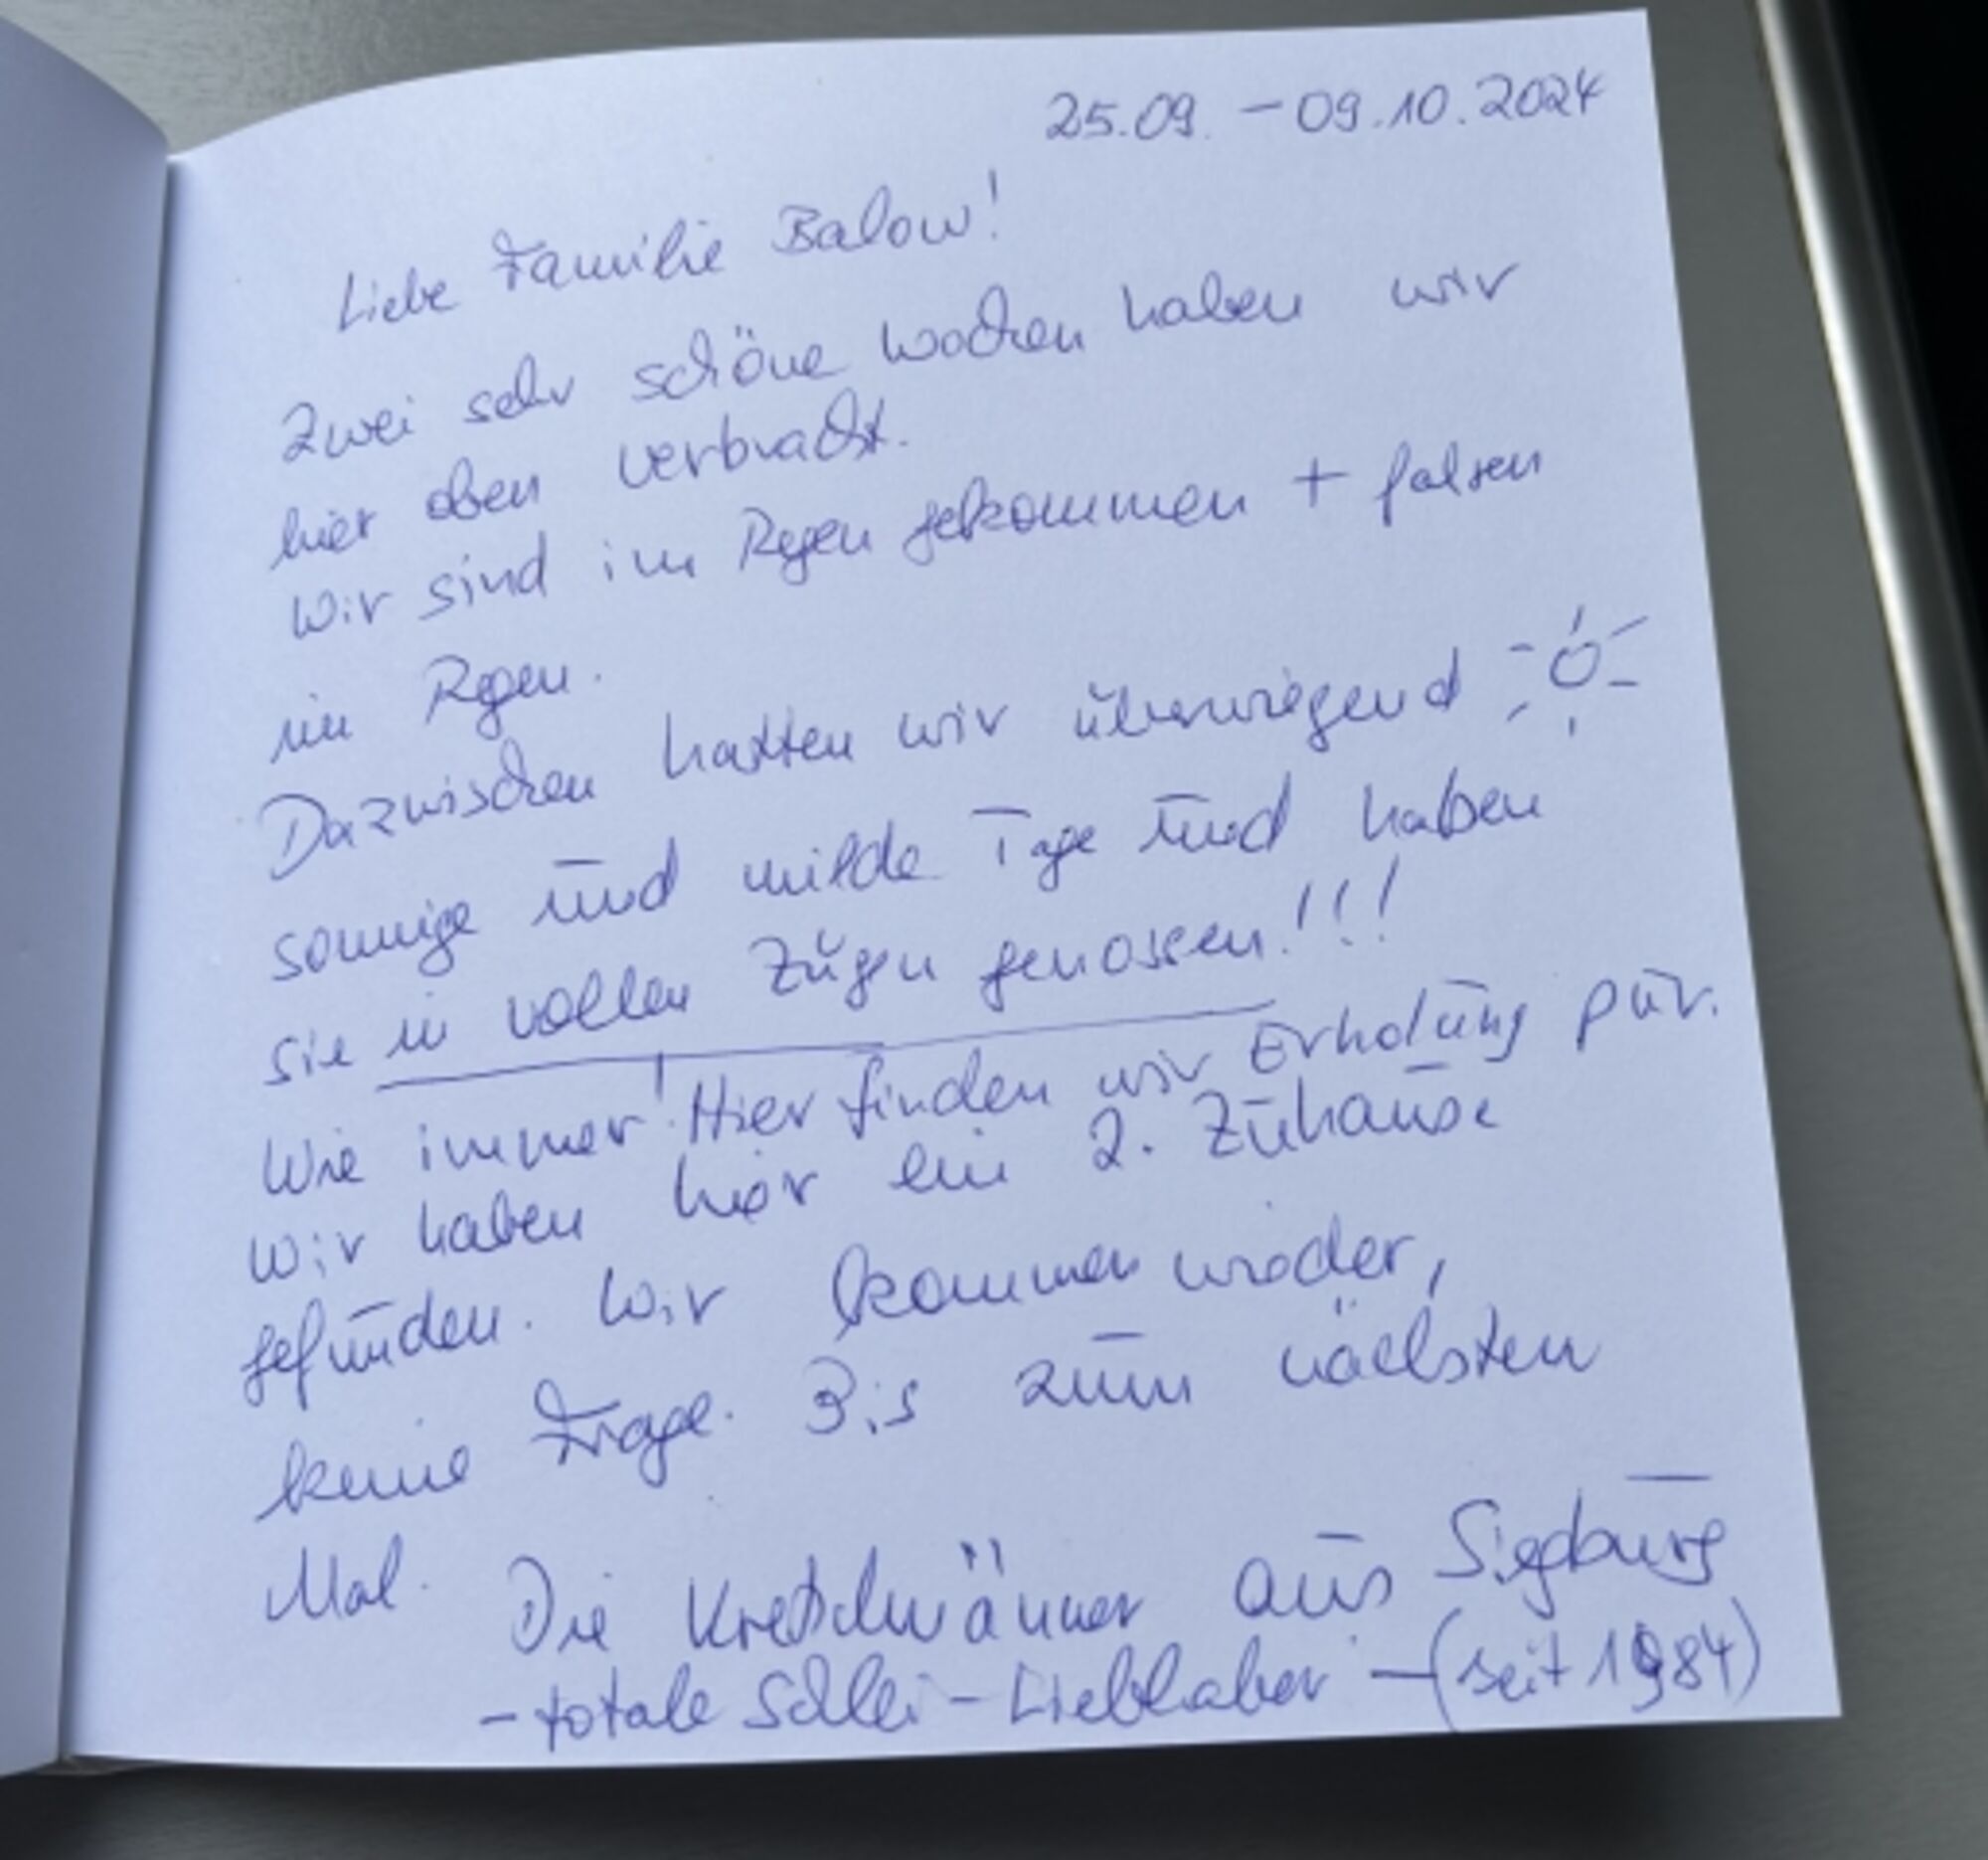 25.09. – 09.10.2024
Liebe Familie Balow!
Zwei sehr schöne Wochen haben wir
hier oben verbracht.
Wir sind im Regen gekommen + fahren
im Regen.
Dazwischen hatten wir überwiegend
sonnige und milde Tage und haben
sie in vollen Zügen genossen!!!
Wie immer! Hier finden wir Erholung pur.
Wir haben hier ein 2. Zuhause
gefunden. Wir kommen wieder,
keine Frage. Bis zum nächsten
Mal.
Die aus Siegburg
- totale Schlei - Liebhaber - (seit 1984)